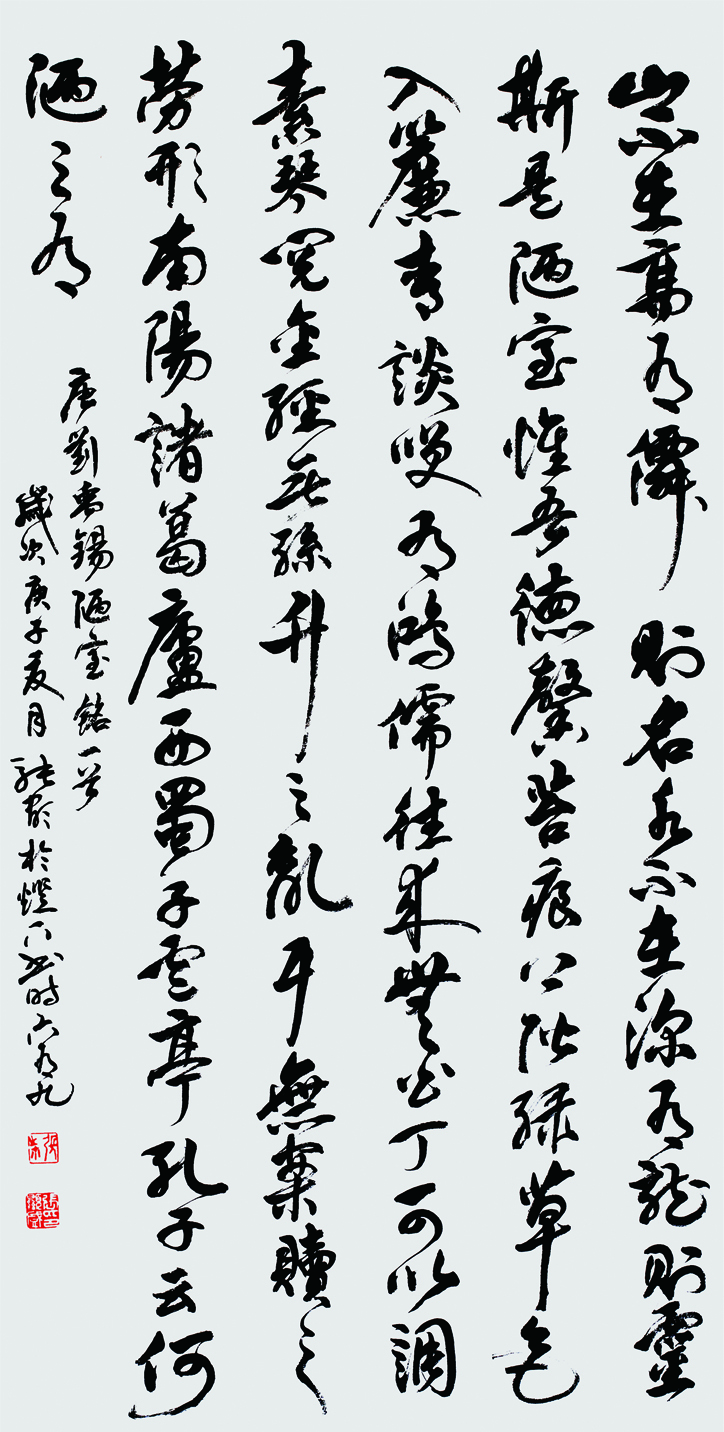 山不在高有僊則名水不在深有龍則靈
斯是陋室惟吾德馨苔痕上階綠草色
入簾青談笑有鴻儒往來無白丁可以調
素琴閱金經無絲竹之亂耳無案牘之
勞形南陽諸葛廬西蜀子雲亭孔子云何
陋之有
唐劉禹錫陋室銘一首
歲次庚子夏月張於燈下時六有九